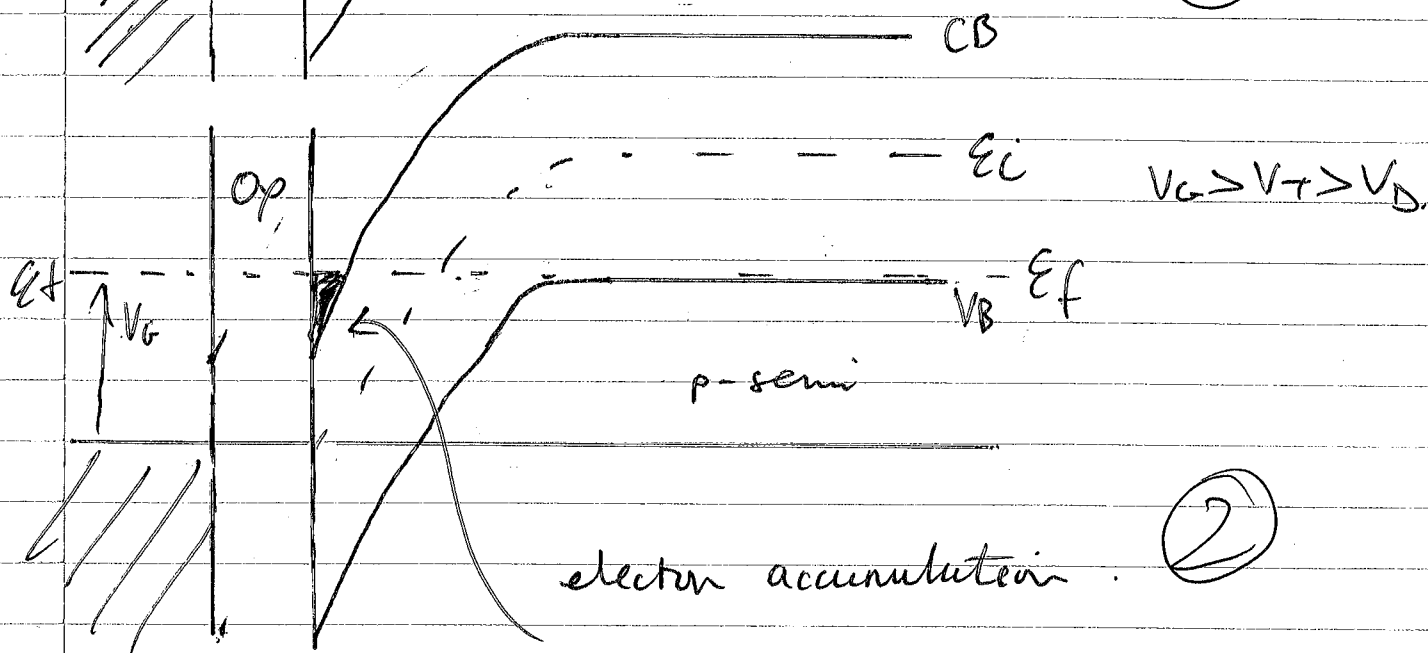 CB
Ei
VG > VT > VD.
Op
Ef
Ef
VG
VB
p-semi
electon accumulation .
2